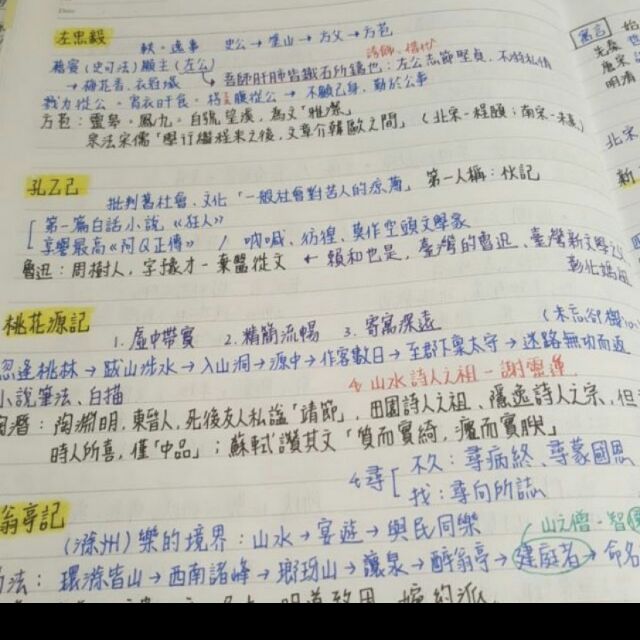 左忠毅
軼。逸事 史公→望山→方父→方苞
諸師、摺州
賓(史可法)顯主(左公) → 吾師肝肺皆鐵石所鑄也：左公志節堅貞，不徇私情
方苞：靈皋。鳳九。白號望溪，為文「雅潔」
宋法宋儒「學行繼程朱之後，文章介韓歐之間」(北宋-程頤；南宋-朱熹)
寓言
唐宋
明清
北宋
孔乙己
批判舊社會、文化「一般社會對苦人的涼薄」 第一人稱：伙記
第一篇白話小說《狂人》
享譽最高《阿Q正傳》 / 吶喊、彷徨、莫作空頭文學家
魯迅：周樹人，字豫才-棄醫從文 ← 賴和也是，臺灣的魯迅、臺灣新文學之父
彰化
桃花源記
1.虛中帶實 2.精簡流暢 3.寄寓深遠
忽逢桃林→跋山涉水→入山洞→源中→作客數日→至郡下稟太守→迷路無功而返
小說筆法、白描
山水詩人之祖-謝靈運
陶潛：陶淵明，東晉人，死後友人私諡「靖節」，田園詩人之祖、隱逸詩人之宗，但
時人所喜，僅「中品」；蘇軾讚其文「質而實綺，癯而實腴」
尋 不久：尋病終、尋蒙國恩
找：尋向所誌
翁亭記
(滁州) 樂的境界：山水→宴遊→與民同樂
山之僧-智
法：環滁皆山→西南諸峰→瑯琊山→讓泉→醉翁亭→建庭者→命名